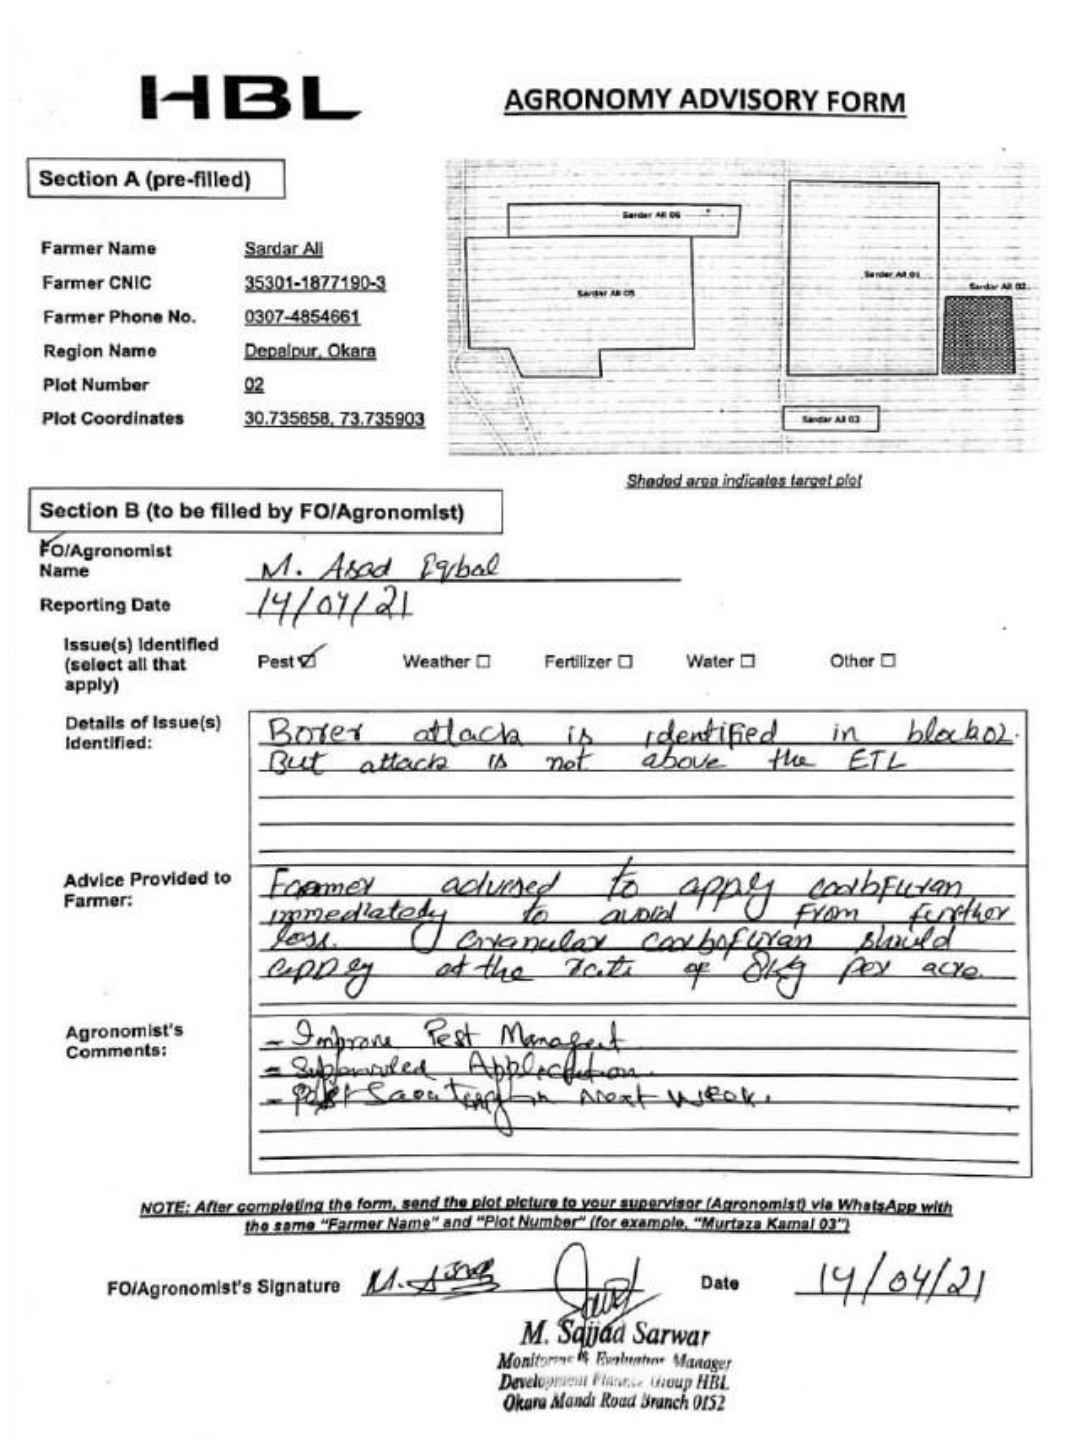 HBL
AGRONOMY ADVISORY FORM
Section A (pre-filled)
Farmer Name Sardar Ali
Farmer CNIC 35301-1877190-3
Farmer Phone No. 0307-4854661
Region Name Depalpur, Okara
Plot Number 02
Plot Coordinates 30.735658, 73.735903
Sardar Ali 06
Sardar Ali 05
Sardar Ali 01
Sardar Ali 02
Sardar Ali 03
Shaded area indicates target plot
Section B (to be filled by FO/Agronomist)
FO/Agronomist
Name M. Asad Iqbal
Reporting Date 14/04/21
Issue(s) Identified
(select all that
apply)
Pest ☑ Weather ☐ Fertilizer ☐ Water ☐ Other ☐
Details of Issue(s)
Identified:
Borer attack is identified in block 02.
But attack is not above the ETL
Advice Provided to
Farmer:
Farmer advised to apply carbfuran
immediately to avoid from further
loss. Granular carbofuran should
apply at the rate of 8kg per acre.
Agronomist's
Comments:
- Improve Pest Managent
- Application.
- Pest Scouting in next week.
NOTE: After completing the form, send the plot picture to your supervisor (Agronomist) via WhatsApp with
the same "Farmer Name" and "Plot Number" (for example, "Murtaza Kamal 03")
FO/Agronomist's Signature Date 14/04/21
M. Sajjad Sarwar
Monitoring & Evaluation Manager
Development Finance Group HBL
Okara Mandi Road Branch 0152